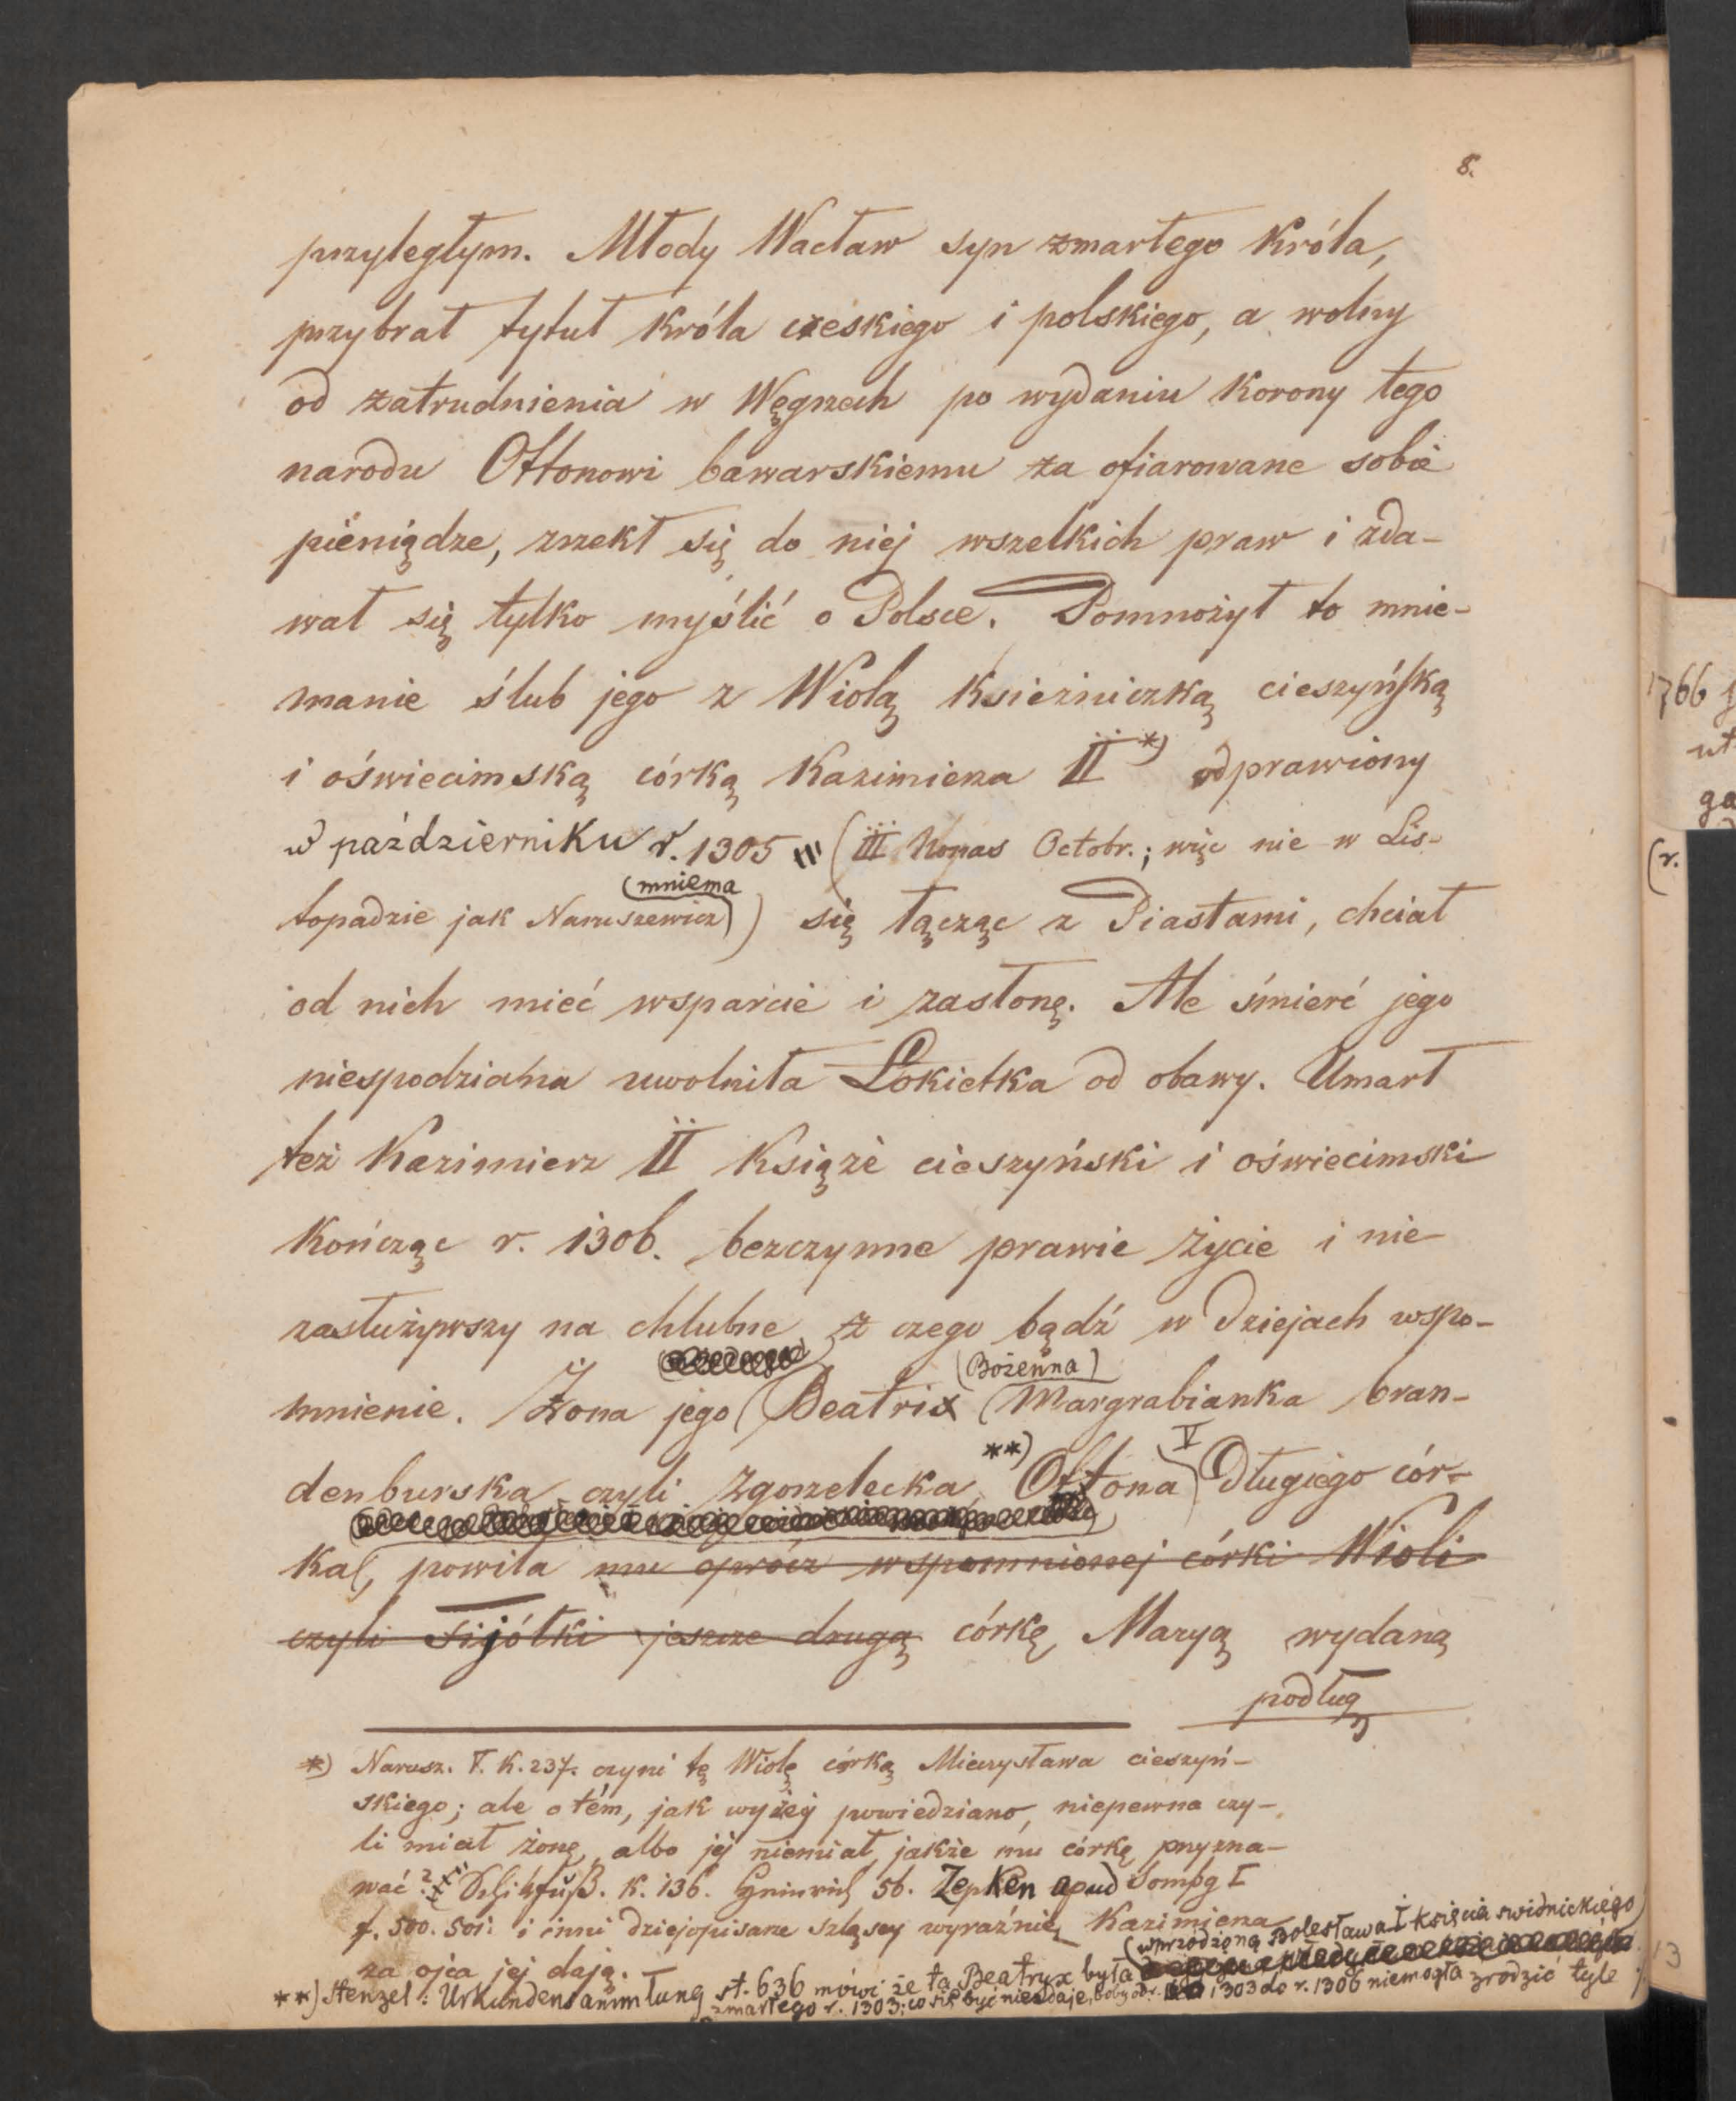 8.
przyległym. Młody Wacław syn zmarłego Króla,
przybrał tytuł Króla czeskiego i polskiego, a wolny
od zatrudnienia w Węgrzech po wydaniu Korony tego
narodu Ottonowi bawarskiemu za ofiarowane sobie
pieniądze, zrzekł się do niej wszelkich praw i zda-
wał się tylko myślić o Polsce. Pomnożył to mnie-
manie ślub jego z Wiolą Księżniczką cieszyńską
i oświecimską córką Kazimierza II *) odprawiony
w październiku r. 1305 (III Nonas Octobr.; więc nie w Lis-
(mniema
topadzie jak Naruszewicz)) się łącząc z Piastami, chciał
od nich mieć wsparcie i zasłonę. Ale śmierć jego
niespodziana uwolniła Łokietka od obawy. Umarł
też Kazimierz II Książe cieszyński i oświecimski
Kończąc r. 1306. bezczynne prawie życie i nie-
zasłużywszy na chlubne z czego bądź w dziejach wspo-
(Bożenna)
mnienie. Żona jego Beatrix Margrabianka bran-
denburska czyli Zgorzelecka, **) Ottona V Długiego cór-
Ka, powiła mu oprócz wspomnionej córki Wioli
czyli Fijółki jeszcze drugą córkę Maryą wydaną
podług
*) Narusz. T. K. 237. czyni tę Wiolę córką Mieczysława cieszyń-
skiego; ale o tém, jak wyżej powiedziano, niepewna czy-
li miał żonę, albo jej niemiał, jakże mu córkę przyzna-
wać? Schikfuß. K. 136. Henrich 56. Zepken apud Somsbg I
f. 500. 501. i inni dziejopisarze szląscy wyraźnie Kazimierza
za ojca jej dają.
**) Stenzel: Urkundensammlung st. 636 mówi że ta Beatryx była (wprzód żoną Bolesława I Księcia swidnickiego)
zmarłego r. 1303; co się być niezdaje, boby od r. 1303 do r. 1306 niemogła zrodzić tyle
1766
ut
(r.
13